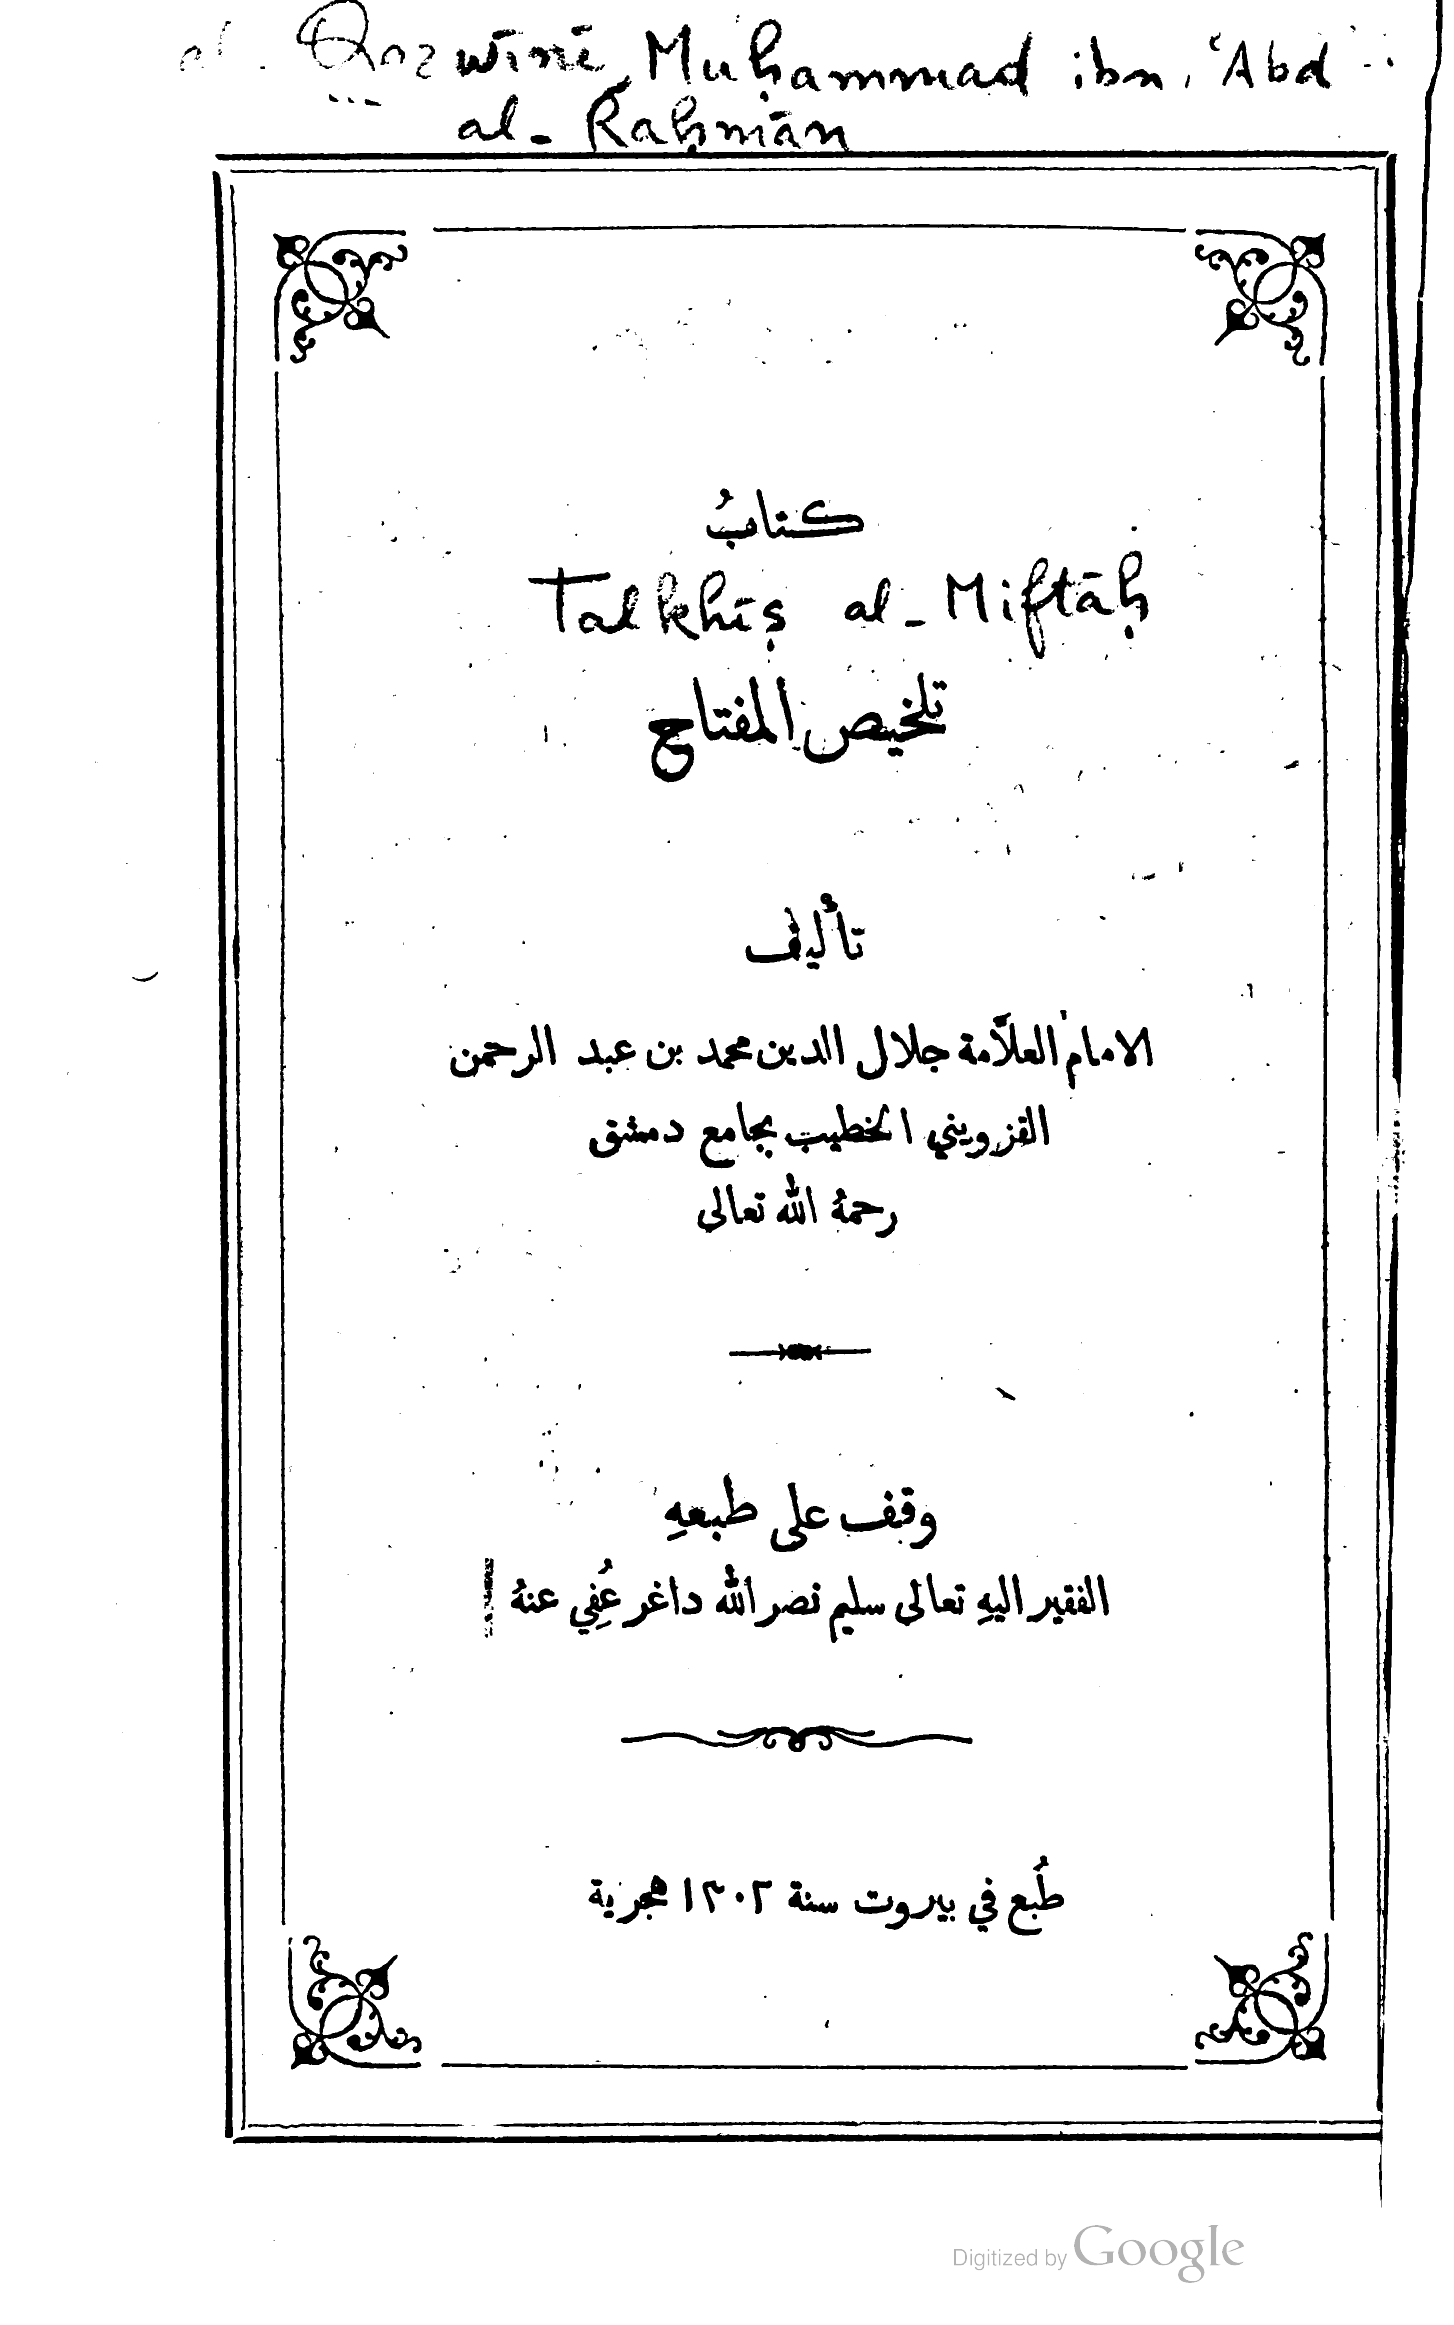 al-Qazwīnī, Muḥammad ibn ʿAbd
al-Raḥmān
كتابُ
Talkhīṣ al-Miftāḥ
تلخيص المفتاح
تأليف
الامام العلاَّمة جلال الدين محمد بن عبد الرحمن
القزويني الخطيب بجامع دمشق
رحمهُ الله تعالى
وقف على طبعهِ
الفقير اليهِ تعالى سليم نصر الله داغر عُفِي عنهُ
طُبع في بيروت سنة ١٣٠٢ هجرية
Digitized by Google